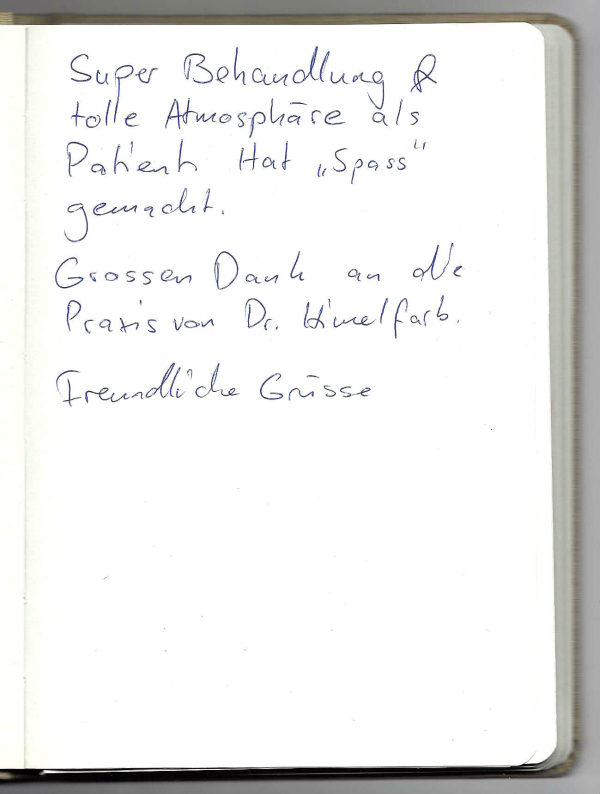 Super Behandlung &
tolle Atmosphäre als
Patient Hat „Spass"
gemacht.
Grossen Dank an die
Praxis von Dr. Himelfarb.
Freundliche Grüsse